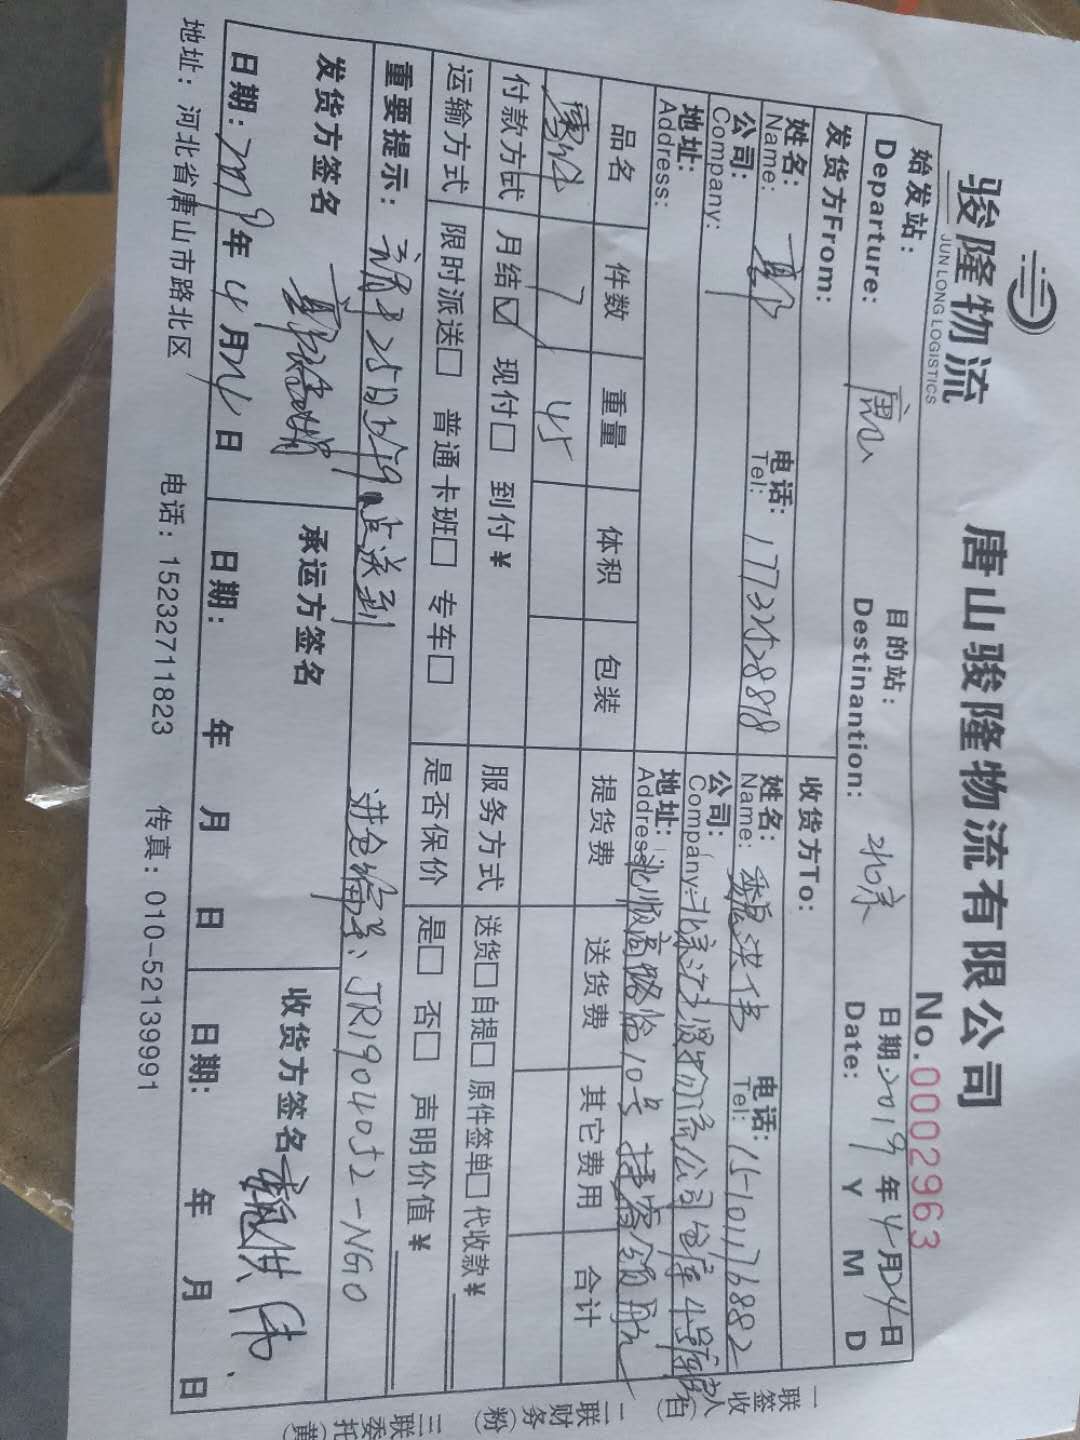 骏隆物流
JUN LONG LOGISTICS
唐山骏隆物流有限公司
No.0002963
始发站: 唐山 目的站: 北京 日期: 2019年4月24日
Departure: Destinantion: Date: Y M D
发货方From: 收货方To:
姓名: 电话: 17732528818 姓名: 魏洪伟 电话: 15101176882
Name: Tel: Name: Tel:
公司: 公司: 北京
Company: Company:
地址: 地址:
Address: Address:
品名 件数 重量 体积 包装 提货费 送货费 其它费用 合计
7 45
付款方式 月结☑ 现付□ 到付¥ 服务方式 送货□自提□ 原件签单□代收款¥
运输方式 限时派送□ 普通卡班□ 专车□ 是否保价 是□ 否□ 声明价值¥
重要提示: 25日 送到 进仓编号: JR1904052-NGO
发货方签名 承运方签名 收货方签名 魏洪伟
日期: 2019年4月24日 日期: 年 月 日 日期: 年 月 日
地址: 河北省唐山市路北区 电话: 15232711823 传真: 010-52139991
一联签收(白)
二联财务(粉)
三联委托(黄